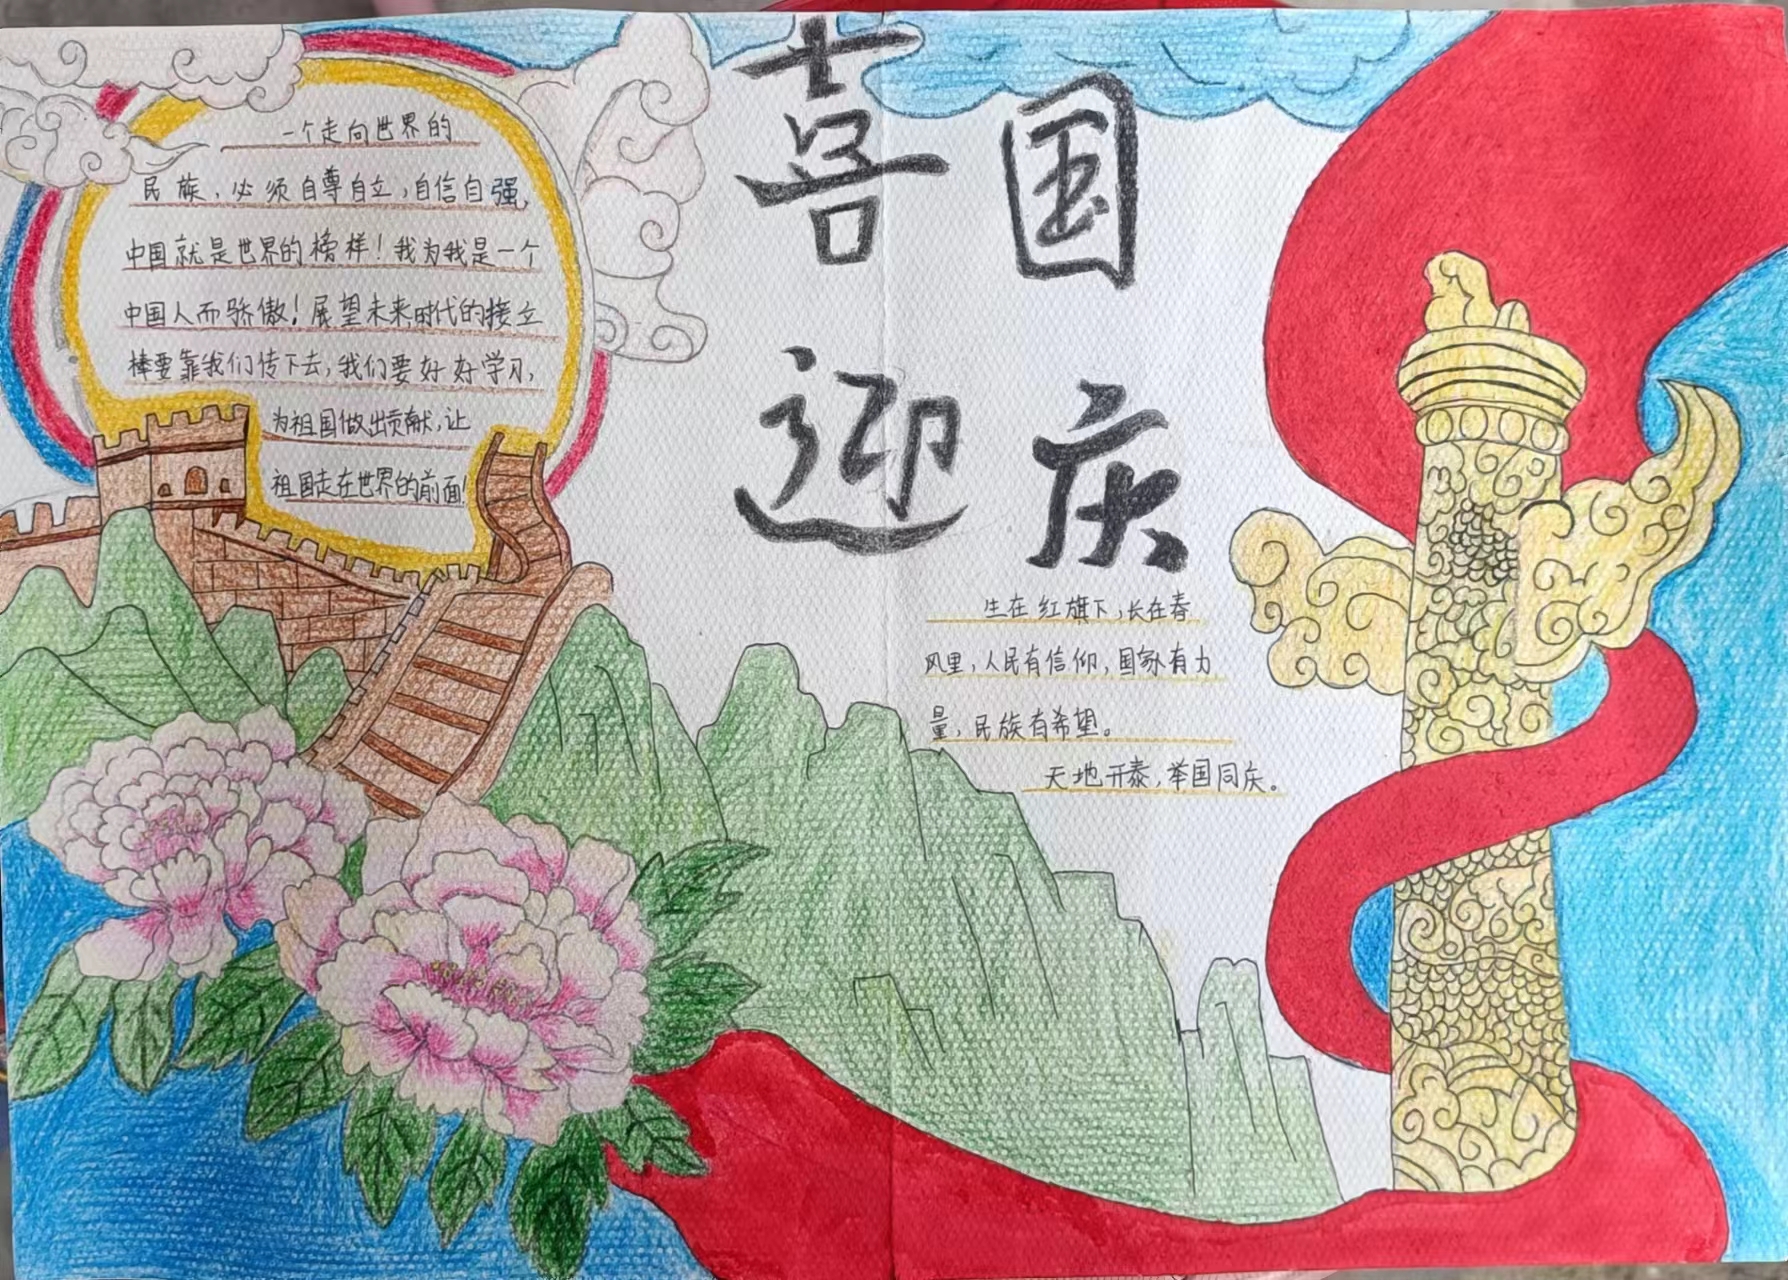 喜国
迎庆
一个走向世界的
民族，必须自尊自立，自信自强，
中国就是世界的榜样！我为我是一个
中国人而骄傲！展望未来，时代的接立
棒要靠我们传下去，我们要好好学习，
为祖国做出贡献，让
祖国走在世界的前面！
生在红旗下，长在春
风里，人民有信仰，国家有力
量，民族有希望。
天地开泰，举国同庆。